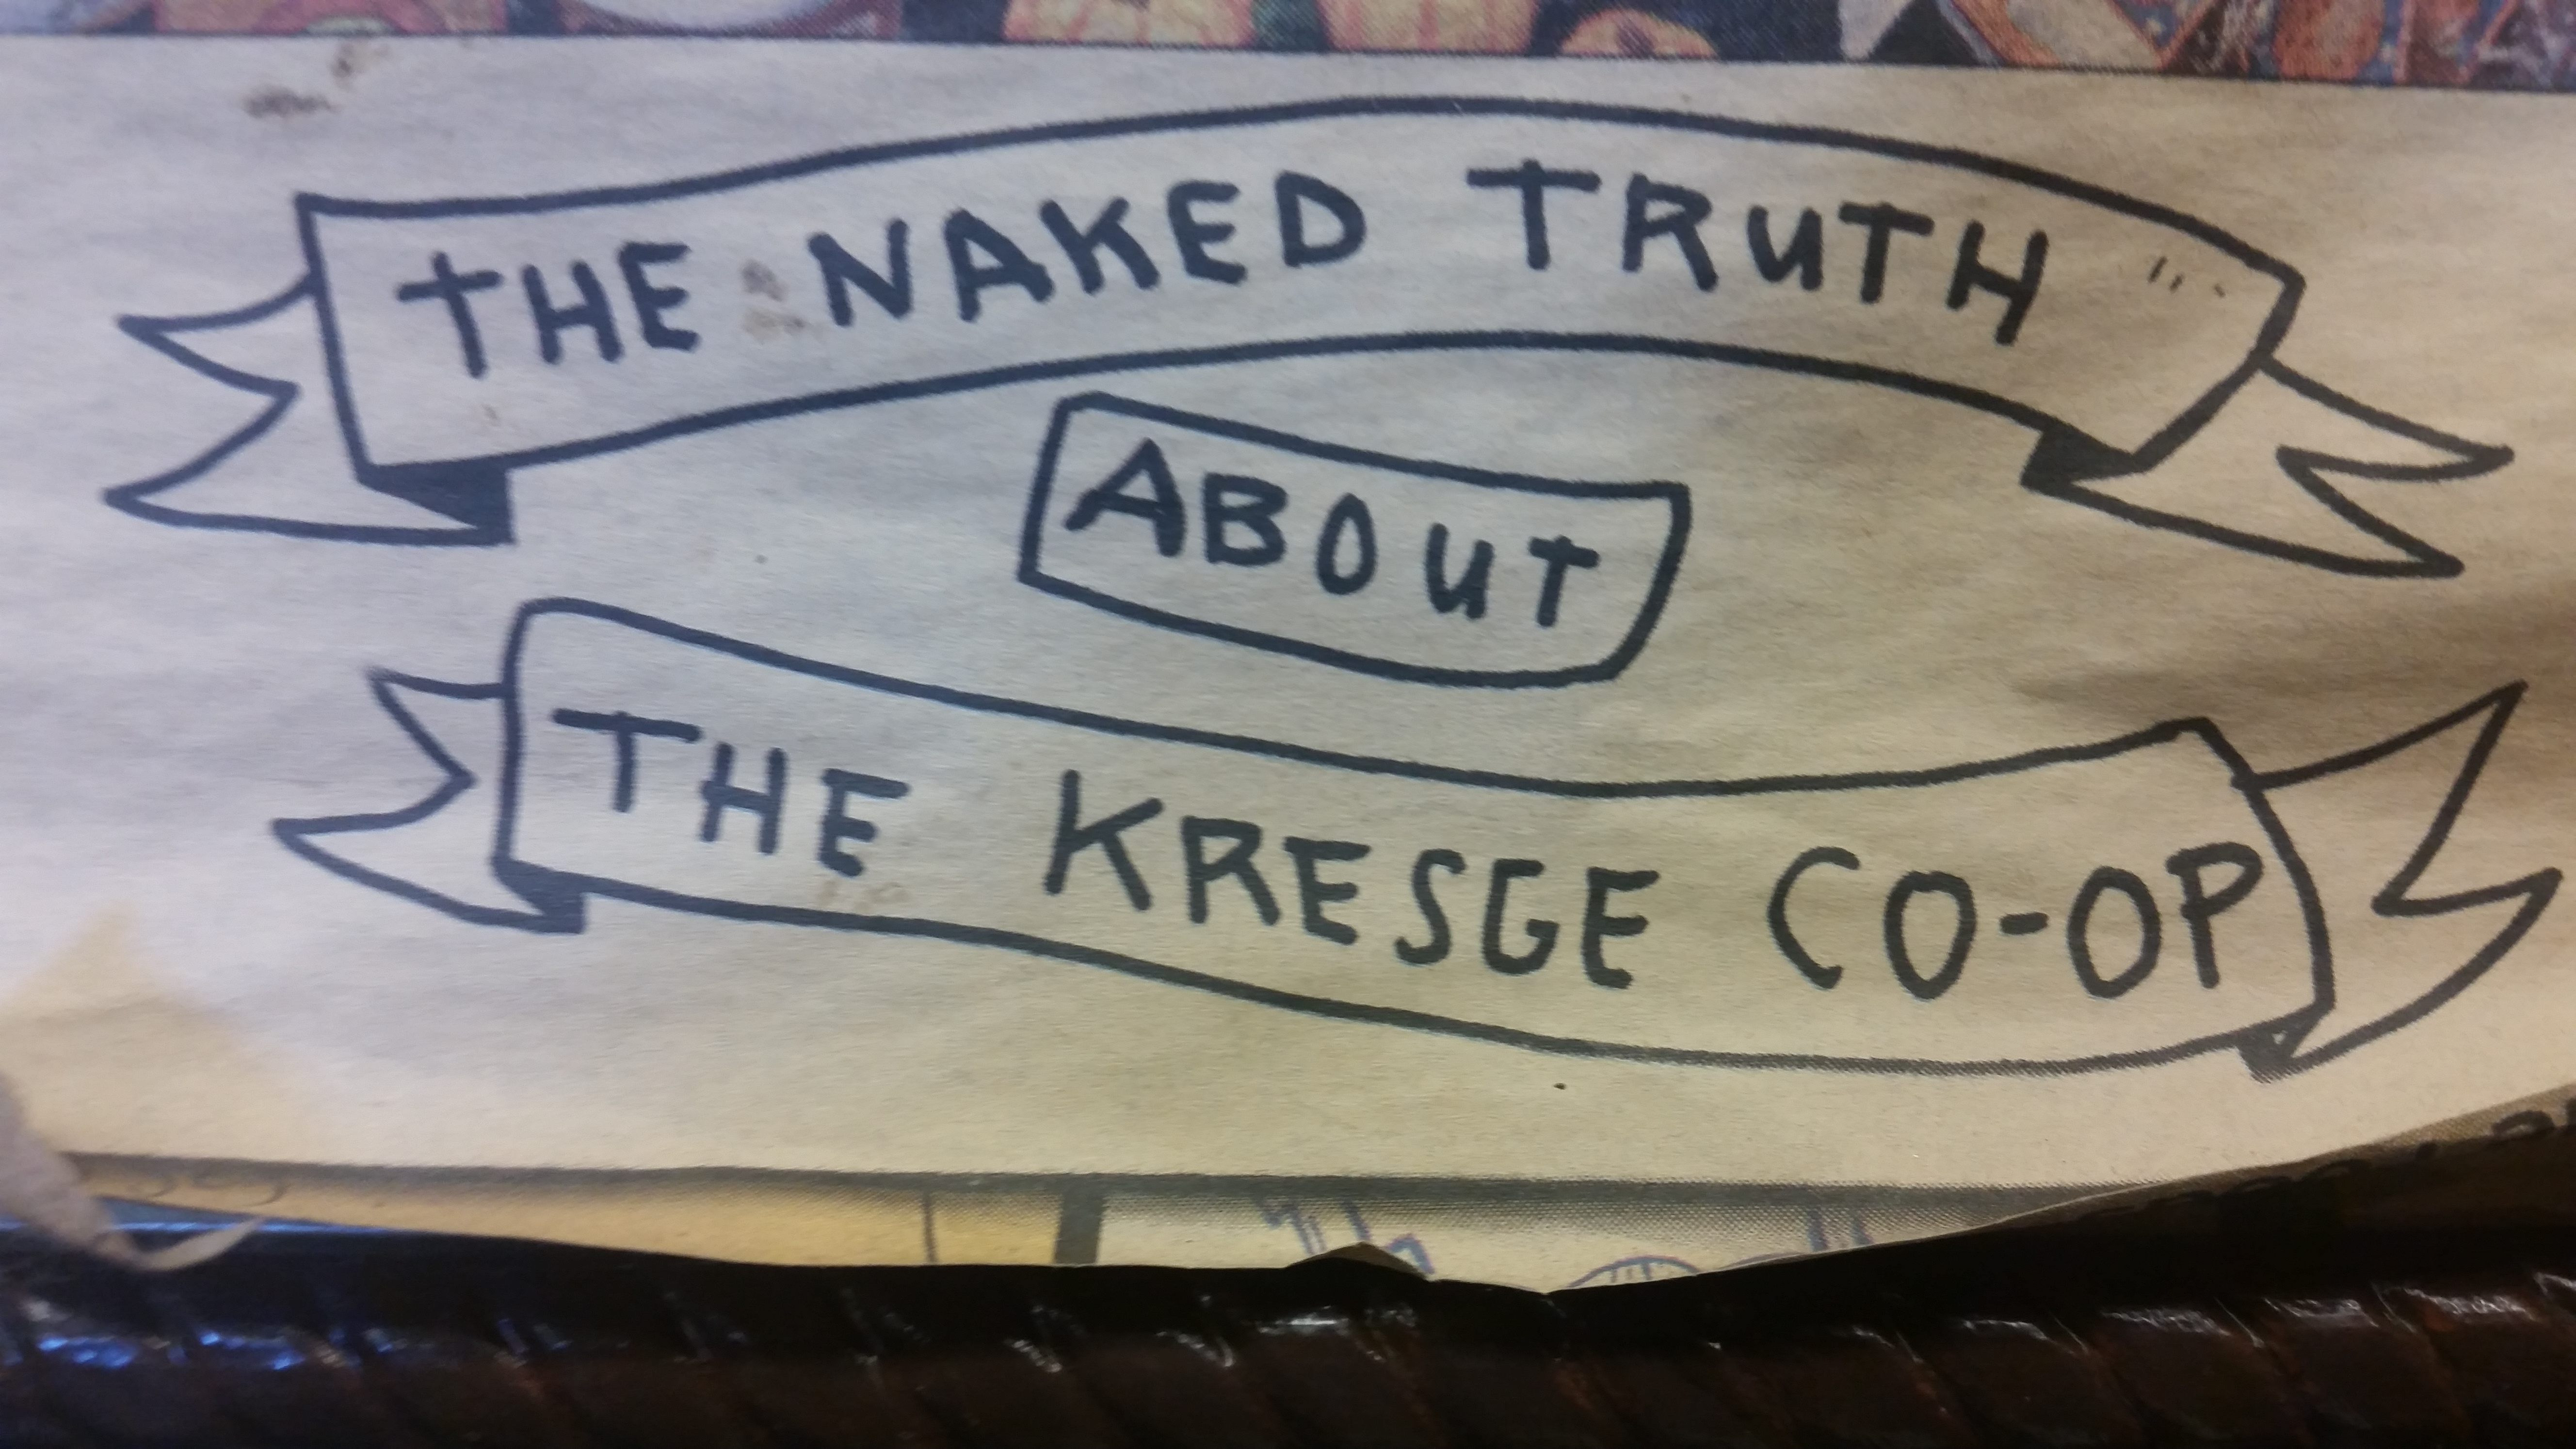 THE NAKED TRUTH
ABOUT
THE KRESGE CO-OP